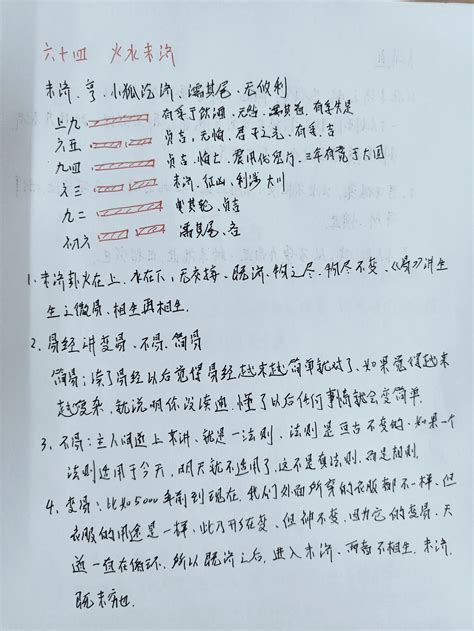 六十四 火水未济
未济、亨、小狐汔济、濡其尾、无攸利
上九 有孚于饮酒、无咎、濡其首、有孚失是
六五 贞吉、无悔、君子之光、有孚、吉
九四 贞吉、悔亡、震用伐鬼方、三年有赏于大国
六三 未济、征凶、利涉大川
九二 曳其轮、贞吉
初六 濡其尾、吝
1、未济卦火在上、水在下、无交接、既济、物之尽、物尽不变、《易》讲生
生之微易、相生再相生。
2、易经讲变易、不易、简易
简易:读了易经以后觉得易经越来越简单就对了、如果觉得越来
越复杂、就说明你没读进、懂了以后任何事情就会变简单、
3、不易:主人间道上来讲、就是一法则、法则是亘古不变的、如果一个
法则适用于今天、明天就不适用了、这不是真法则、而是规则、
4、变易:比如5000年前到现在、我们外面所穿的衣服都不一样、但
衣服的用途是一样、此乃形在变、但神不变、因为它的变易、天
道一直在循环、所以既济之后、进入未济、两者不相生、未济、
既未穷也、